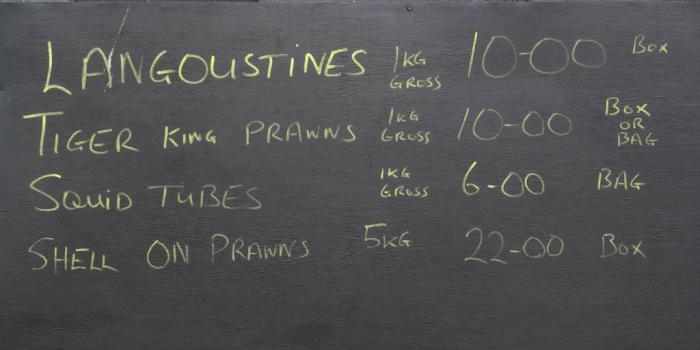 LANGOUSTINES 1KG GROSS 10-00 BOX
TIGER KING PRAWNS 1KG GROSS 10-00 BOX OR BAG
SQUID TUBES 1KG GROSS 6-00 BAG
SHELL ON PRAWNS 5KG 22-00 BOX